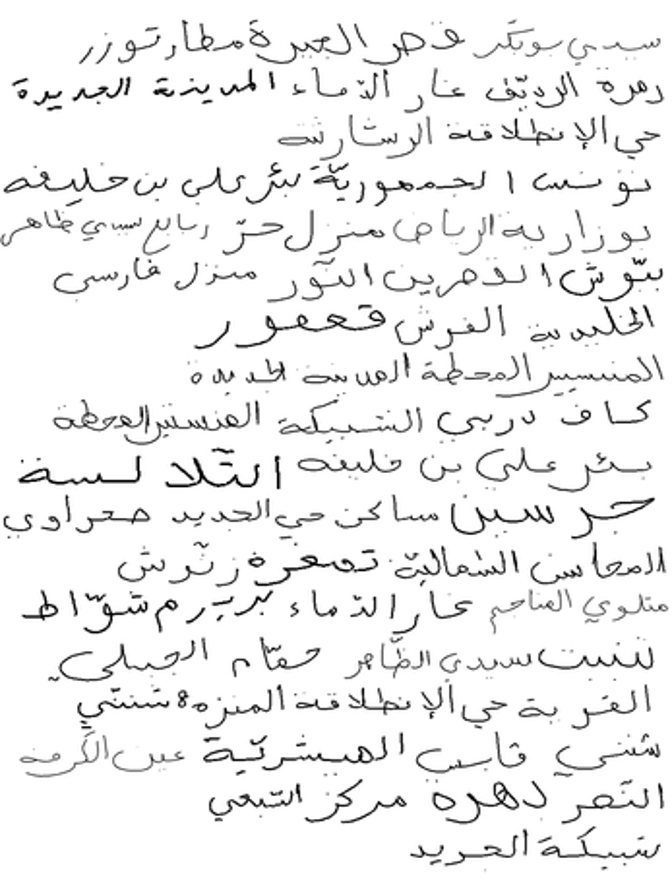 سيدي بوبكر قصر الجيرة مطار توزر
دهرة الرديّف غار الدّماء المدينة الجديدة
حي الإنطلاقة الرشارشة
تونس الجمهوريّة بئر علي بن خليفة
بوزارية الرياض منزل حرّ ربايع سيدي ظاهر
بتّوش القصرين النّور منزل فارسي
الخليدية الفرش قعفور
المنستير المحطة المدينة الجديدة
كاف دربي الشبيكة المنستير المحطة
بئر علي بن خليفة التّلالسة
جرسين مساكن حي الجديد صحراوي
المحاسن الشّماليّة تمغرة زنّوش
متلوي المناجم غار الدّماء بريرم شوّاط
تنبت سيدي الظّاهر حمّام الجبلي
القرية حي الإنطلاقة المنزه 8 شننّي
شنني قابس المبشريّة عين الكرمة
النّصر دهرة مركز الشّبعي
شبيكة الجريد